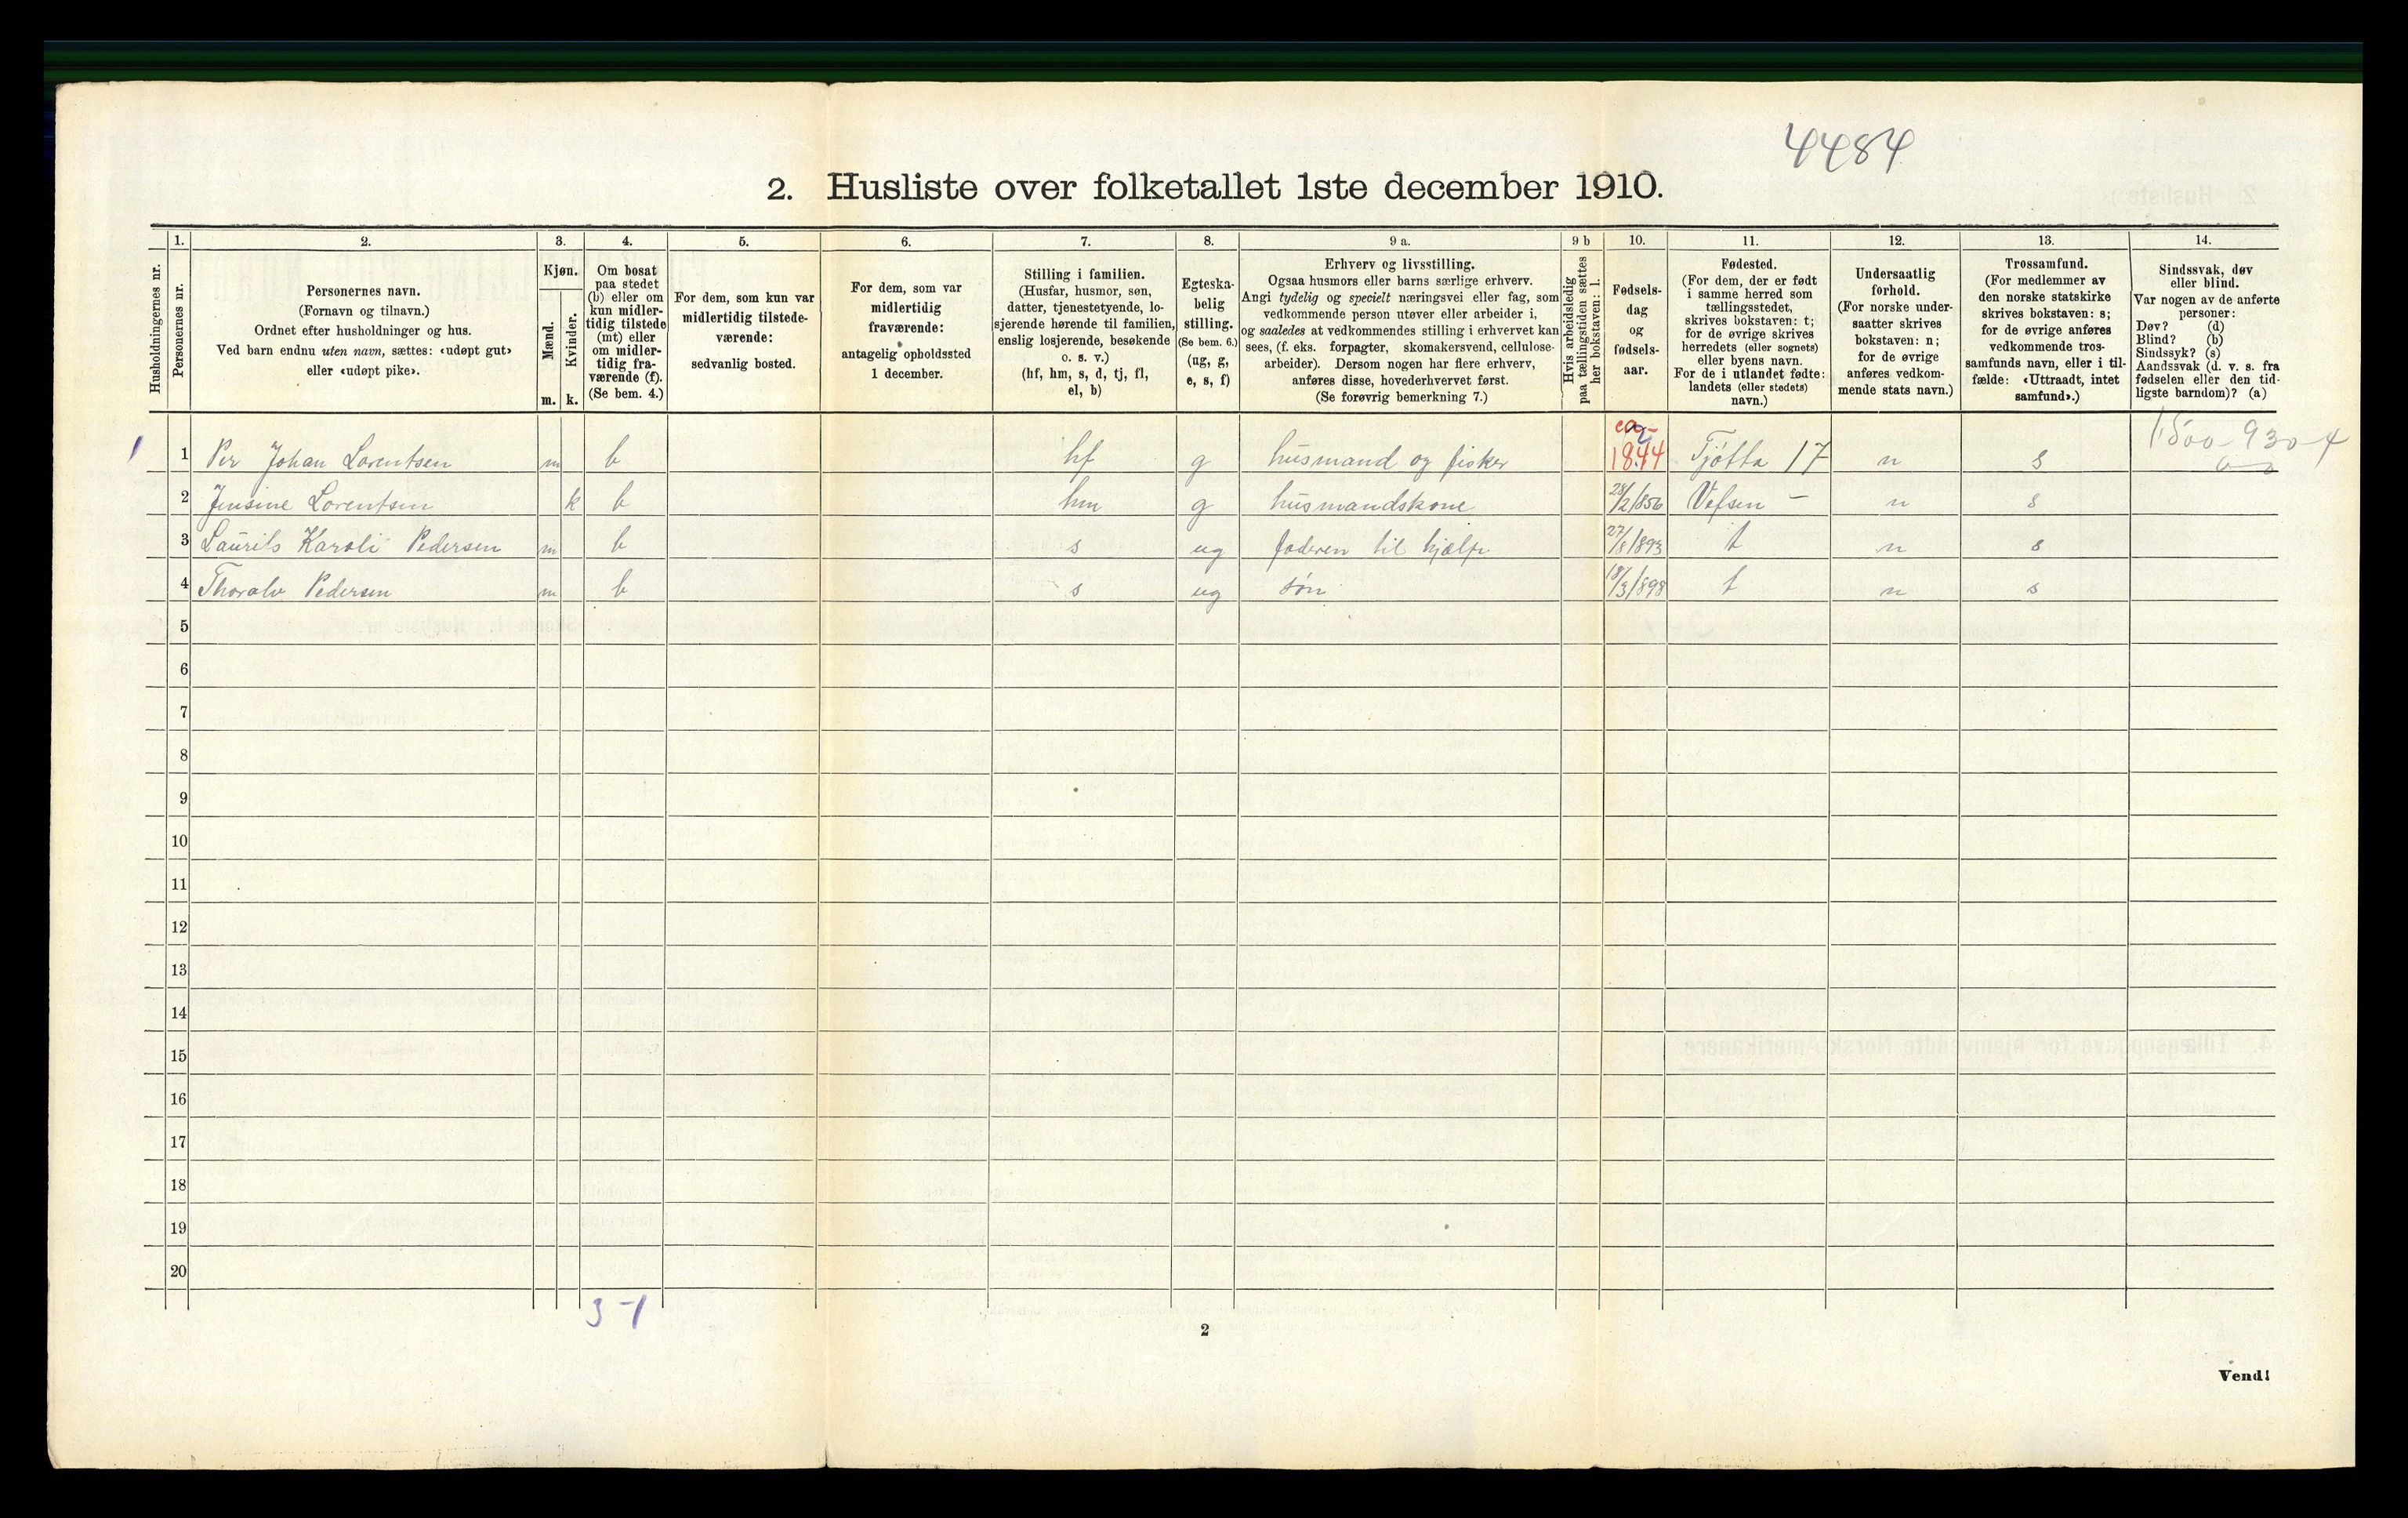 4484
2. Husliste over folketallet 1ste december 1910.
Husholdningernes nr.
1.
Personernes nr.
2.
Personernes navn.
(Fornavn og tilnavn.)
Ordnet efter husholdninger og hus.
Ved barn endnu uten navn, sættes: «udøpt gut»
eller «udøpt pike».
3.
Kjøn.
Mænd.
Kvinder.
m. k.
4.
Om bosat
paa stedet
(b) eller om
kun midler-
tidig tilstede
(mt) eller
om midler-
tidig fra-
værende (f).
(Se bem. 4.)
5.
For dem, som kun var
midlertidig tilstede-
værende:
sedvanlig bosted.
6.
For dem, som var
midlertidig
fraværende:
antagelig opholdssted
1 december.
7.
Stilling i familien.
(Husfar, husmor, søn,
datter, tjenestetyende, lo-
sjerende hørende til familien,
enslig losjerende, besøkende
o. s. v.)
(hf, hm, s, d, tj, fl,
el, b)
8.
Egteska-
belig
stilling.
(Se bem. 6.)
(ug, g,
e, s, f)
9 a.
Erhverv og livsstilling.
Ogsaa husmors eller barns særlige erhverv.
Angi tydelig og specielt næringsvei eller fag, som
vedkommende person utøver eller arbeider i,
og saaledes at vedkommendes stilling i erhvervet kan
sees, (f. eks. forpagter, skomakersvend, cellulose-
arbeider). Dersom nogen har flere erhverv,
anføres disse, hovederhvervet først.
(Se forøvrig bemerkning 7.)
9 b
Hvis arbeidsledig
paa tællingstiden sættes
her bokstaven: l.
10.
Fødsels-
dag
og
fødsels-
aar.
11.
Fødested.
(For dem, der er født
i samme herred som
tællingsstedet,
skrives bokstaven: t;
for de øvrige skrives
herredets (eller sognets)
eller byens navn.
For de i utlandet fødte:
landets (eller stedets)
navn.)
12.
Undersaatlig
forhold.
(For norske under-
saatter skrives
bokstaven: n;
for de øvrige
anføres vedkom-
mende stats navn.)
13.
Trossamfund.
(For medlemmer av
den norske statskirke
skrives bokstaven: s;
for de øvrige anføres
vedkommende tros-
samfunds navn, eller i til-
fælde: «Uttraadt, intet
samfund».)
14.
Sindssvak, døv
eller blind.
Var nogen av de anførte
personer:
Døv? (d)
Blind? (b)
Sindssyk? (s)
Aandssvak (d. v. s. fra
fødselen eller den tid-
ligste barndom)? (a)
1500-930-4
0-0
1 1 Per Johan Lorentsen m b hf g husmand og fisker ca. 1844 Tjøtta 17 n s
2 Jensine Lorentsen k b hm g husmandskone 28/2/856 Vefsen – n s
3 Laurits Karoli Pedersen m b s ug faderen til hjælp 27/8/893 t n s
4 Thoralv Pedersen m b s ug søn 18/3/898 t n s
5
6
7
8
9
10
11
12
13
14
15
16
17
18
19
20
3-1
2
Vend!